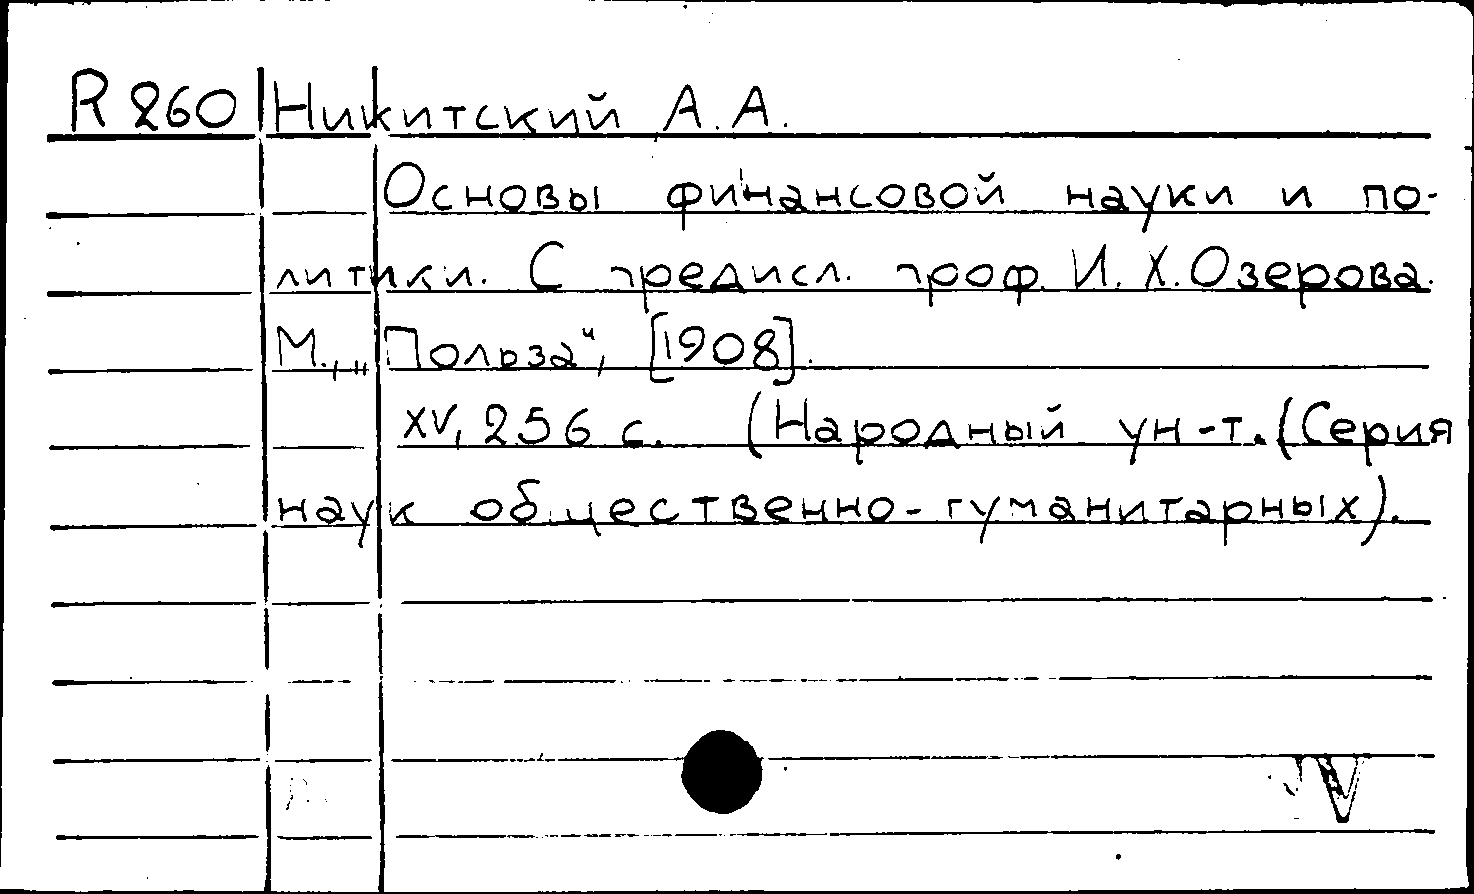 R 260 Никитский А.А.
Основы финансовой науки и по-
литики. С предисл. проф. И.Х.Озерова.
М., „Польза“, [1908].
XV, 256 с. (Народный ун-т. (Серия
наук общественно-гуманитарных).
V